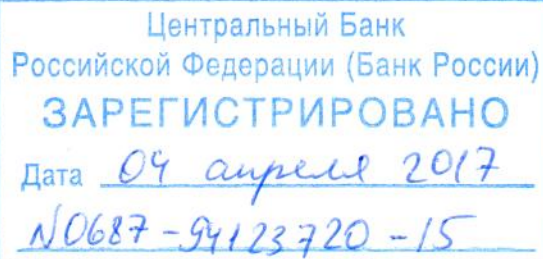 Центральный Банк
Российской Федерации (Банк России)
ЗАРЕГИСТРИРОВАНО
Дата 04 апреля 2017
N0687-94123720-15